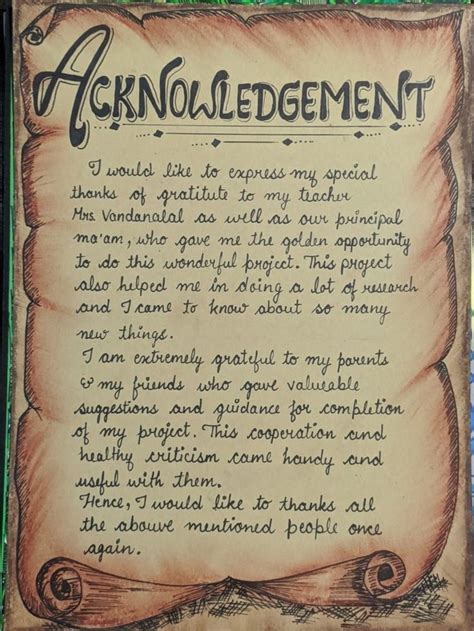 ACKNOWLEDGEMENT
I would like to express my special
thanks of gratitute to my teacher
Mrs. Vandanalal as well as our principal
ma'am, who gave me the golden opportunity
to do this wonderful project. This project
also helped me in doing a lot of research
and I came to know about so many
new things.
I am extremely grateful to my parents
& my friends who gave valueable
suggestions and guidance for completion
of my project. This cooperation and
healthy criticism came handy and
useful with them.
Hence, I would like to thanks all
the abouve mentioned people once
again.